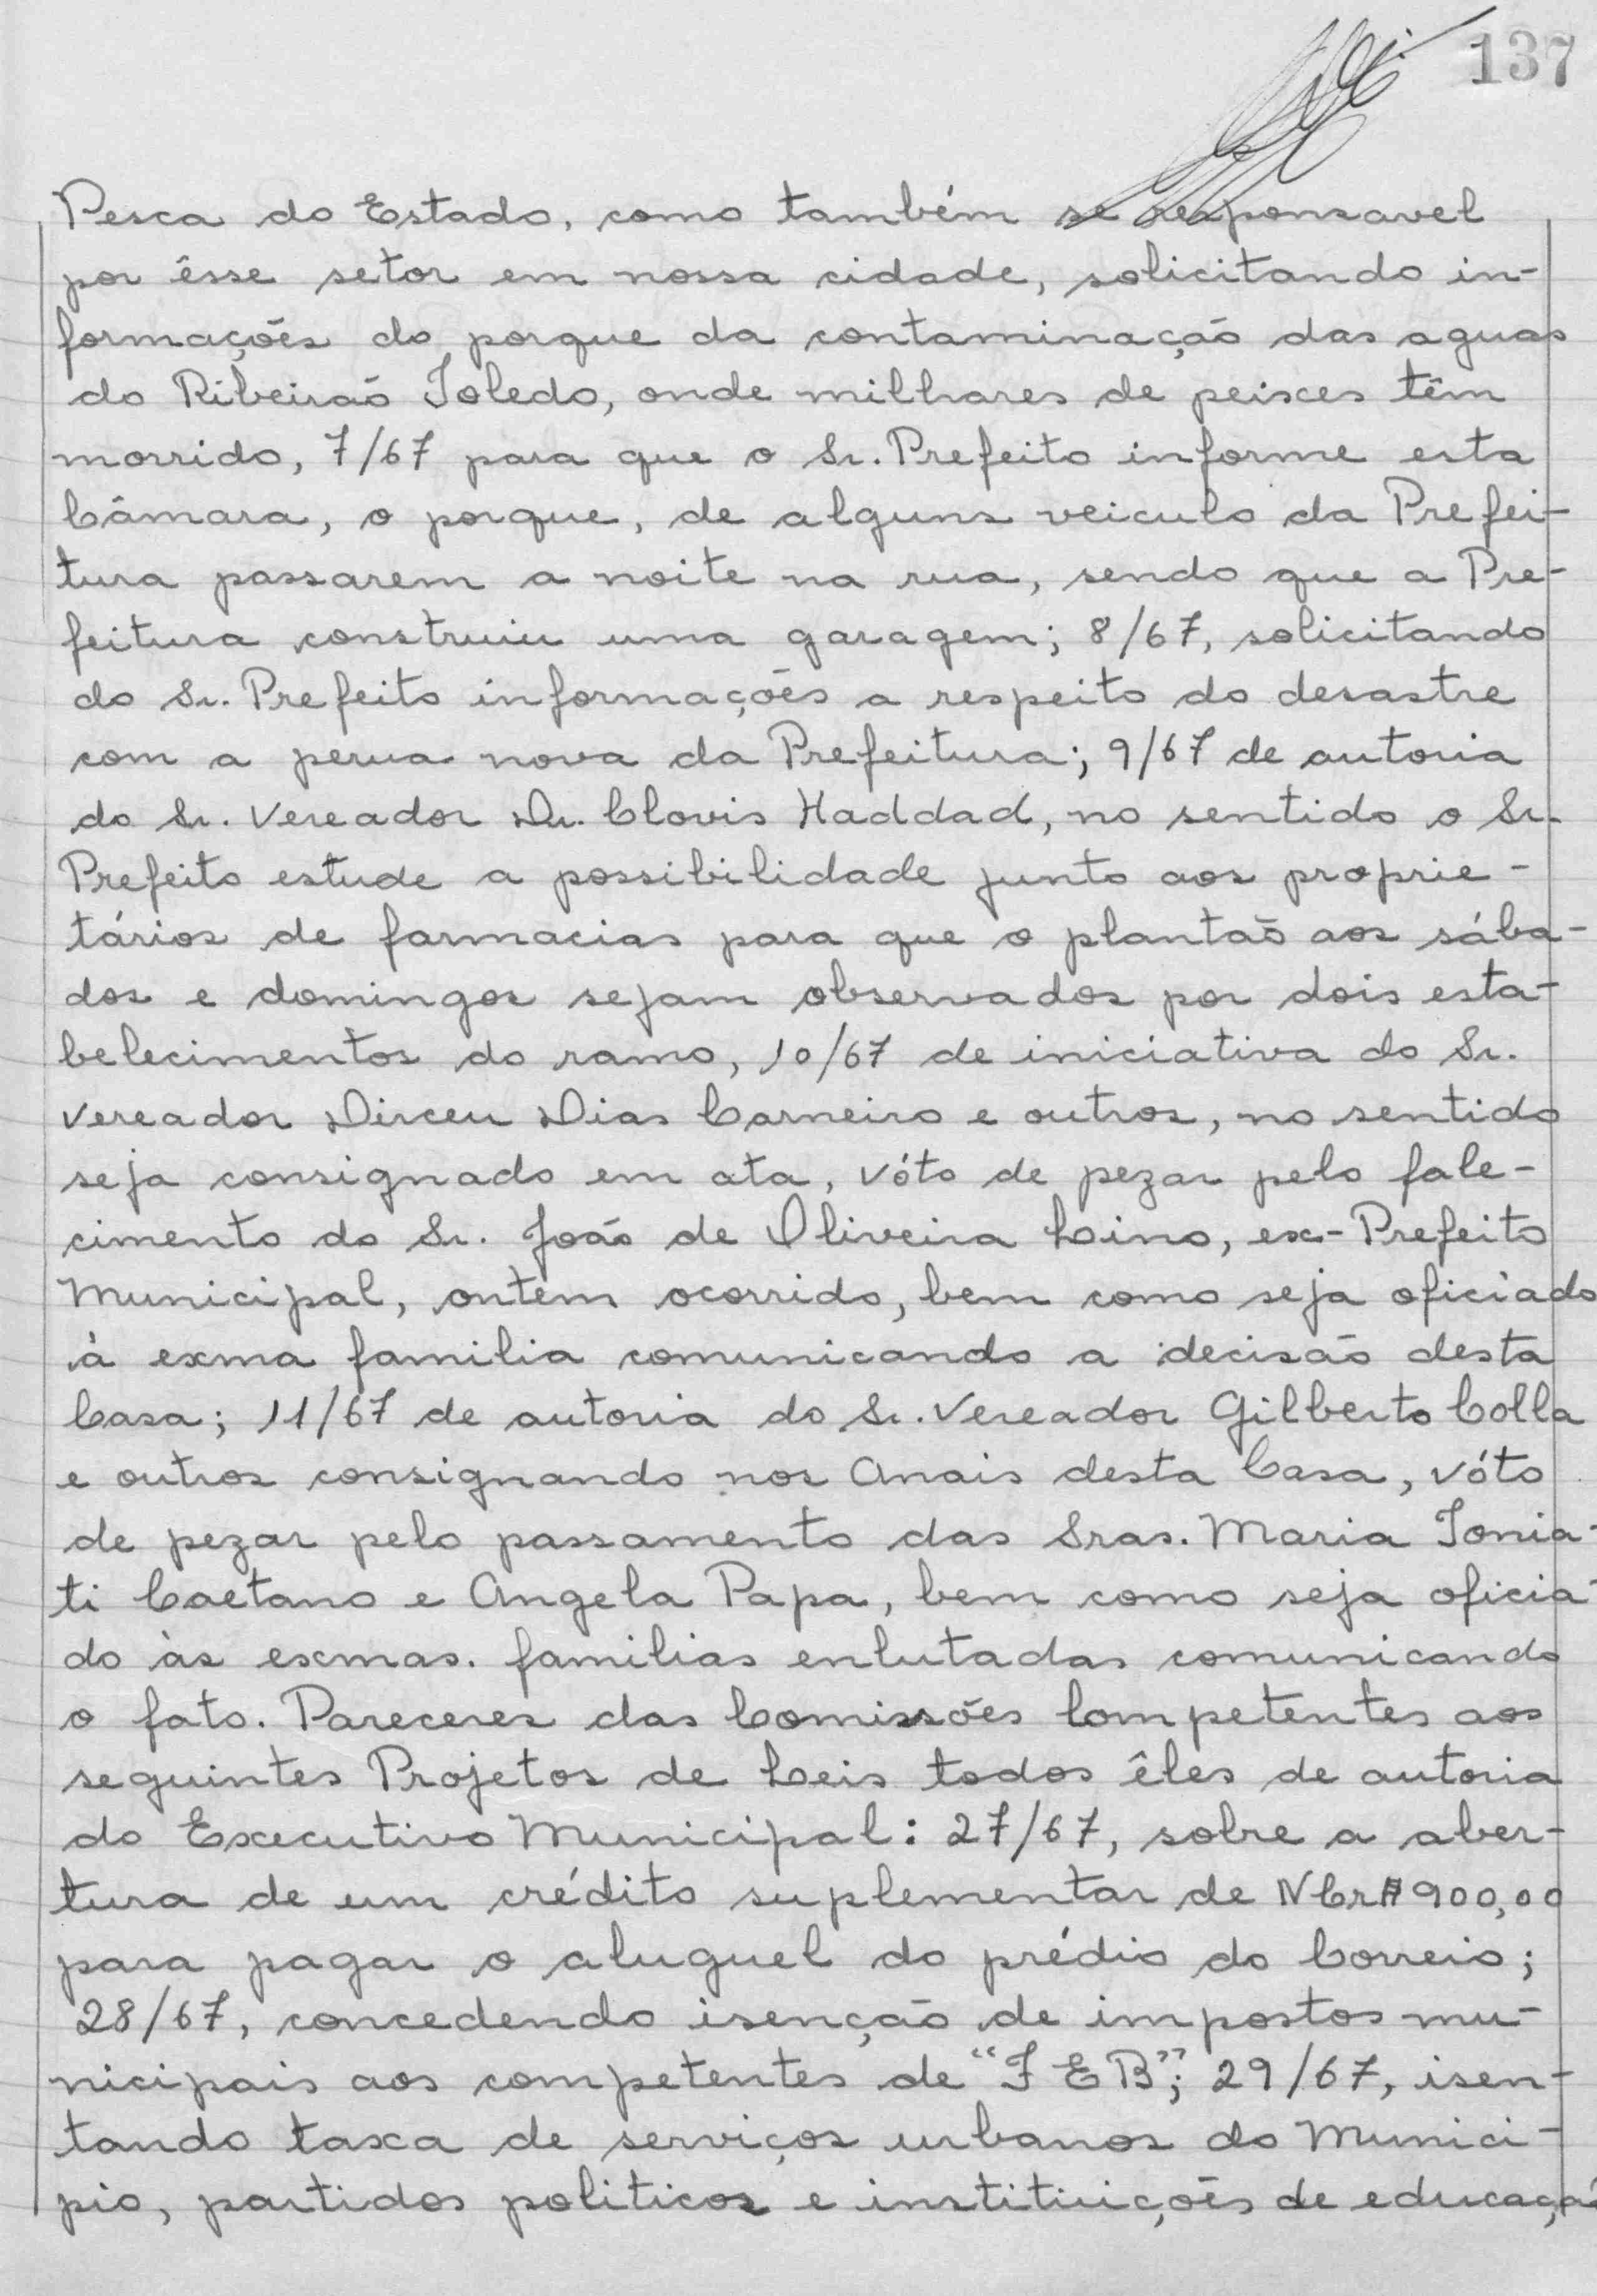 137
Pesca do Estado, como também se responsavel
por êsse setor em nossa cidade, solicitando in-
formações do porque da contaminação das aguas
do Ribeirão Toledo, onde milhares de peixes têm
morrido, 7/67 para que o Sr. Prefeito informe esta
Câmara, o porque, de alguns veiculo da Prefei-
tura passarem a noite na rua, sendo que a Pre-
feitura construiu uma garagem; 8/67, solicitando
do Sr. Prefeito informações a respeito do desastre
com a perua nova da Prefeitura; 9/67 de autoria
do Sr. Vereador Dr. Clovis Haddad, no sentido o Sr.
Prefeito estude a possibilidade junto aos proprie-
tários de farmacias para que o plantão aos sába-
dos e domingos sejam observados por dois esta-
belecimentos do ramo, 10/67 de iniciativa do Sr.
Vereador Dirceu Dias Carneiro e outros, no sentido
seja consignado em ata, vóto de pezar pelo fale-
cimento do Sr. João de Oliveira Lino, ex-Prefeito
Municipal, ontem ocorrido, bem como seja oficiado
à exma familia comunicando a decisão desta
Casa; 11/67 de autoria do Sr. Vereador Gilberto Colla
e outros consignando nos Anais desta Casa, vóto
de pezar pelo passamento das Sras. Maria Tonia-
ti Caetano e Angela Papa, bem como seja oficia-
do às exmas. familias enlutadas comunicando
o fato. Pareceres das Comissões Competentes aos
seguintes Projetos de Leis todos êles de autoria
do Executivo Municipal: 27/67, sobre a aber-
tura de um crédito suplementar de NCr$ 900,00
para pagar o aluguel do prédio do Correio;
28/67, concedendo isenção de impostos mu-
nicipais aos competentes de "F E B"; 29/67, isen-
tando taxa de serviços urbanos do Munici-
pio, partidos politicos e instituições de educação